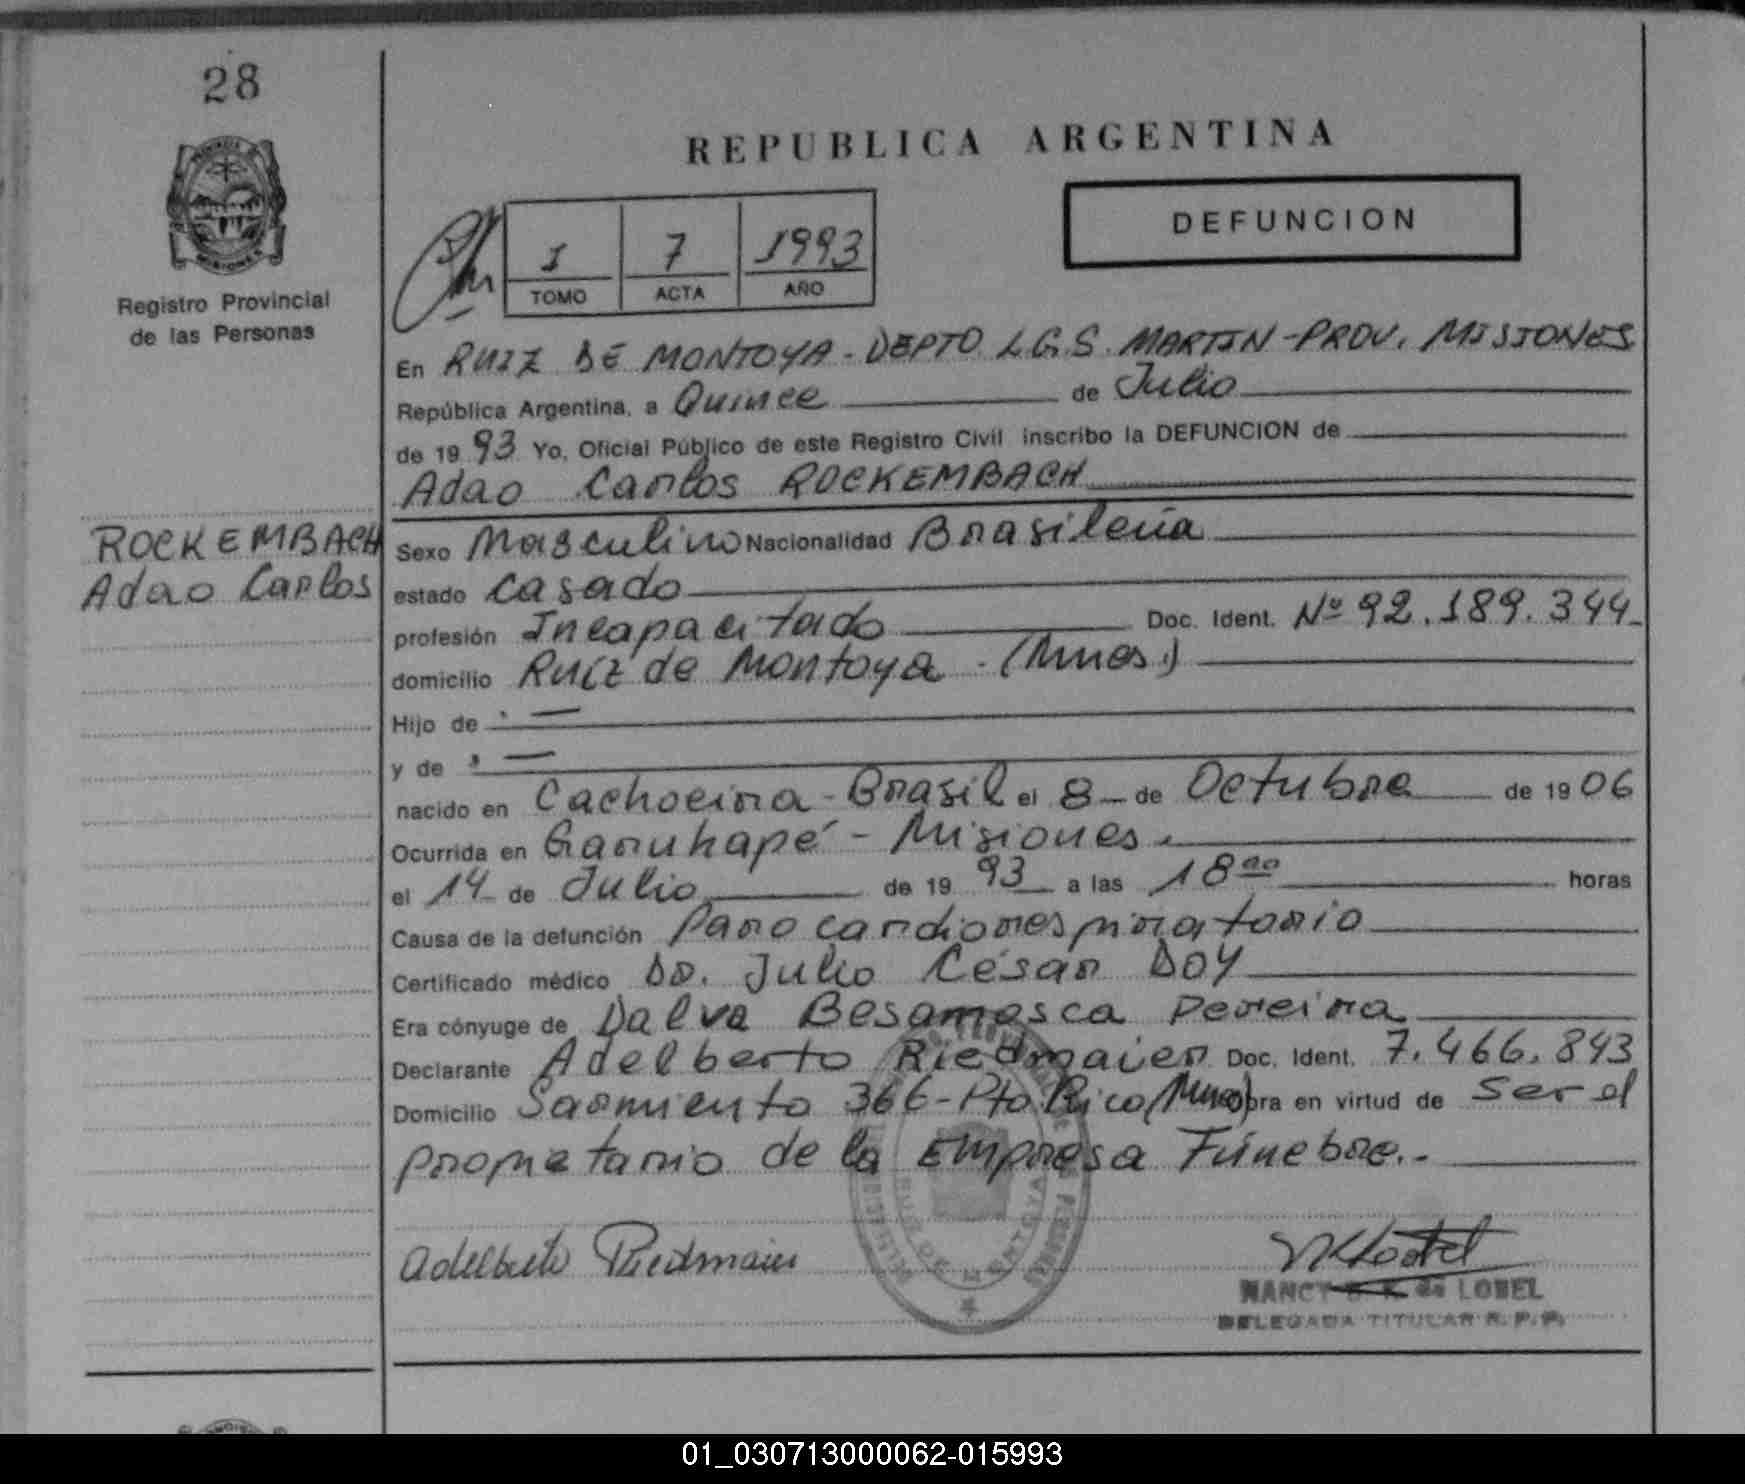 28
REPUBLICA ARGENTINA
DEFUNCION
1 7 1993
TOMO ACTA AÑO
Registro Provincial
de las Personas
En RUIZ DE MONTOYA - DEPTO L.G.S. MARTIN - PROV. MISIONES
República Argentina, a Quince de Julio
de 19 93 Yo, Oficial Público de este Registro Civil inscribo la DEFUNCION de
Adao Carlos ROCKEMBACH
ROCKEMBACH
Adao Carlos
Sexo Masculino Nacionalidad Brasileña
estado casado
profesión Incapacitado Doc. Ident. Nº 92.189.344
domicilio Ruiz de Montoya - (Mnes.)
Hijo de . —
y de . —
nacido en Cachoeira - Brasil el 8 - de Octubre de 19 06
Ocurrida en Garuhapé - Misiones.
el 14 de Julio de 19 93 a las 18 00 horas
Causa de la defunción Paro cardiorespiratorio
Certificado médico Dr. Julio César DOY
Era cónyuge de Dalva Besamosca Pereira
Declarante Adelberto Riedmaier Doc. Ident. 7.466.843
Domicilio Sarmiento 366 - Pto. Rico (Mnes) obra en virtud de ser el
propietario de la Empresa Fúnebre.-
Adelberto Riedmaier
NANCY de LOBEL
DELEGADA TITULAR R.P.P.
RUIZ DE MONTOYA
01_030713000062-015993